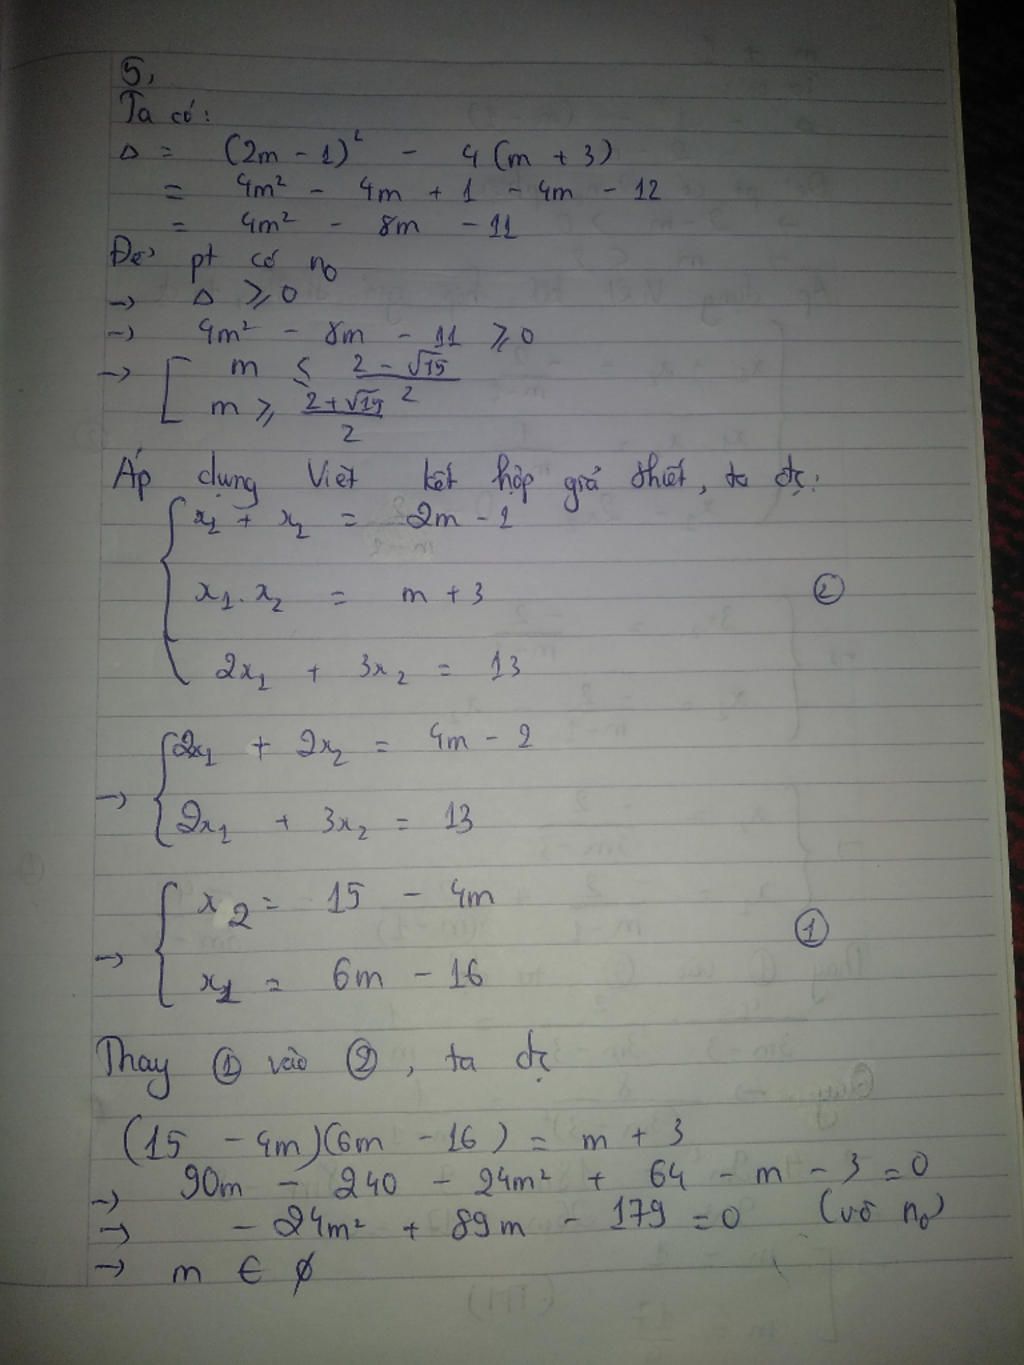 5,
Ta có:
Δ = (2m - 1)² - 4(m + 3)
= 4m² - 4m + 1 - 4m - 12
= 4m² - 8m - 11
Để pt có n₀
→ Δ ≥ 0
→ 4m² - 8m - 11 ≥ 0
→ [ m ≤ (2 - √15)/2
m ≥ (2 + √15)/2
Áp dụng Viét kết hợp giả thiết, ta đc:
{ x₁ + x₂ = 2m - 1
x₁.x₂ = m + 3 ②
2x₁ + 3x₂ = 13
→ { 2x₁ + 2x₂ = 4m - 2
2x₁ + 3x₂ = 13
→ { x₂ = 15 - 4m
x₁ = 6m - 16 ①
Thay ① vào ②, ta đc
(15 - 4m)(6m - 16) = m + 3
→ 90m - 240 - 24m² + 64 - m - 3 = 0
→ - 24m² + 89m - 179 = 0 (vô n₀)
→ m ∈ ∅